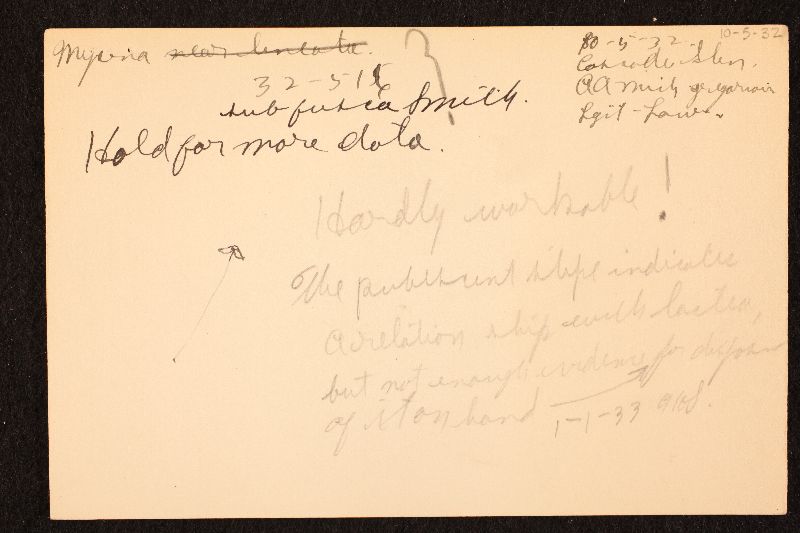 Mycena near lineata. ?
32-511
subfusca Smith.
Hold for more data.
10-5-32
10-5-32
Cascade Glen.
AA Mich gregarious
Legit - Law.
Hardly workable!
The pubescent stipe indicates
a relation ship with lactea,
but not enough evidence for disposal
of it on hand 1-1-33 AHS.